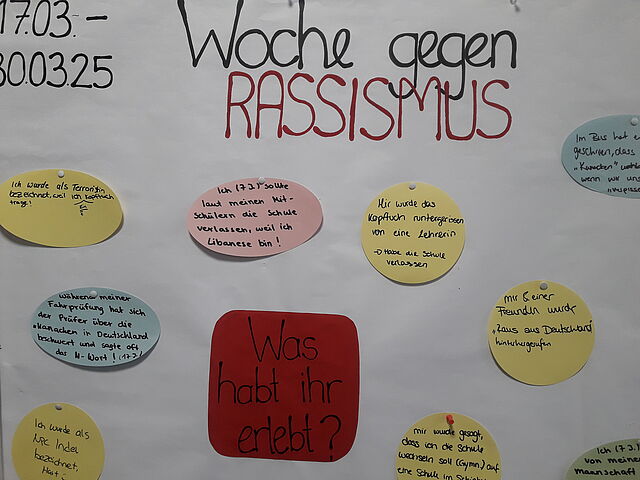 17.03. –
30.03.25
Woche gegen
RASSISMUS
Im Bus hat
geschrien, dass
wenn wir uns
Ich wurde als Terroristin
bezeichnet, weil ich Kopftuch
trage!
Ich (17J.) sollte
laut meinen Mit-
schülern die Schule
verlassen, weil ich
Libanese bin!
Mir wurde das
Kopftuch runtergerissen
von eine Lehrerin
→ Habe die Schule
verlassen
während meiner
Fahrprüfung hat sich
der Prüfer über die
Kanacken in Deutschland
beschwert und sagte oft
das N-Wort! (17J.)
mir & einer
Freundin wurde
„Raus aus Deutschland"
hinterhergerufen
Was
habt ihr
erlebt?
Ich wurde als
bezeichnet,
mir wurde gesagt,
dass ich die Schule
wechseln soll (Gymn.) auf
eine Schule im
Ich (17J.)
von meiner
mannschaft